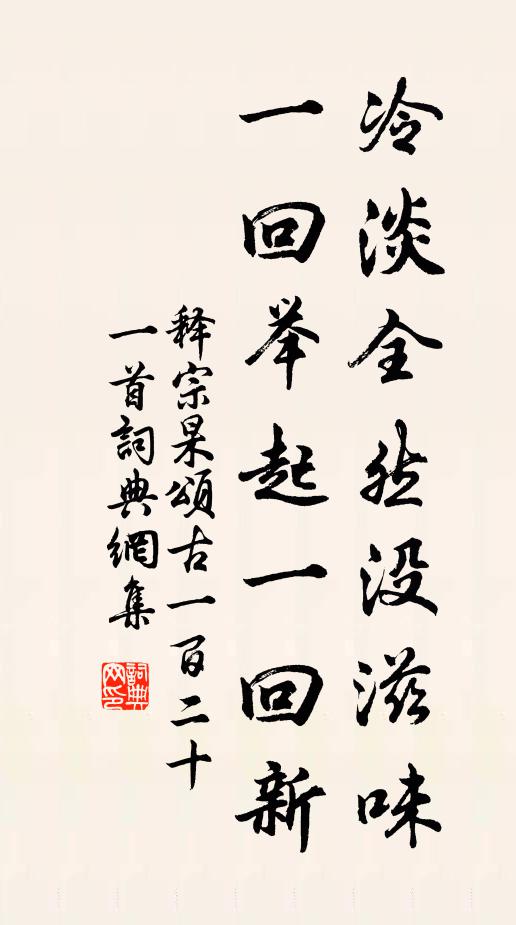 冷淡全然没滋味
一回举起一回新
释宗杲頌古一百二十
一首詞典網集
詞典
网印